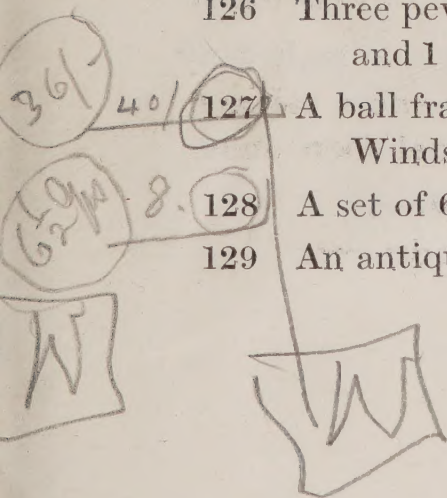 126 Three pew
and 1
36/- 40/ 127 A ball fra
Winds
8. 128 A set of 6
129 An antiqu
W W